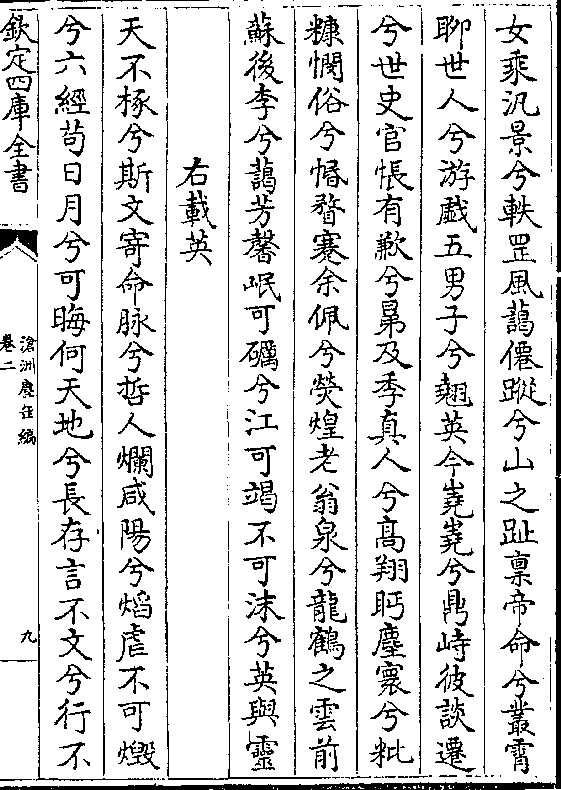 女乘汎景兮軼罡風藹僊蹤兮山之趾稟帝命兮叢霄
聊世人兮游戲五男子兮翹英今嶤嶤兮鼎峙彼談遷
兮世史官悵有歉兮鼂及季真人兮高翔眄塵寰兮粃
糠憫俗兮惛瞀蹇余佩兮熒煌老翁泉兮龍鶴之雲前
蘇後李兮藹芳馨岷可礪兮江可竭不可沫兮英與靈
右載英
天不椓兮斯文寄命脉兮哲人爛咸陽兮熖虐不可燬
兮六經苟日月兮可晦何天地兮長存言不文兮行不
欽定四庫全書
滄洲塵缶編
卷二
九